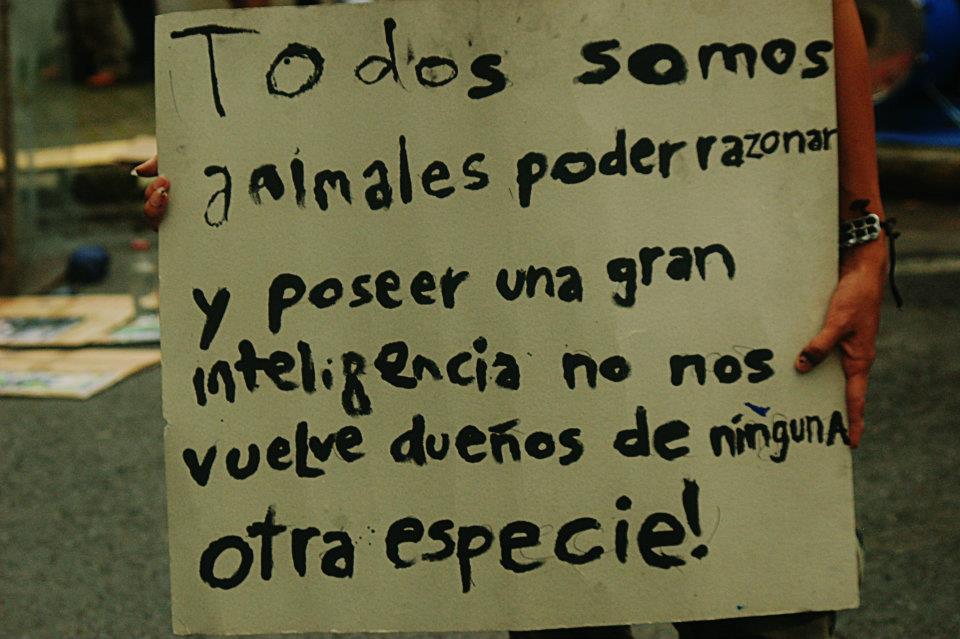 Todos somos
animales poder razonar
y poseer una gran
inteligencia no nos
vuelve dueños de ninguna
otra especie!